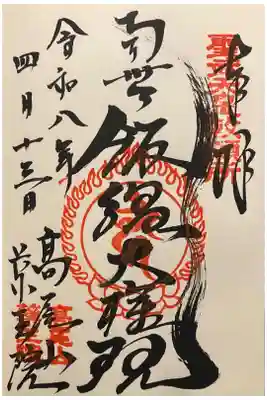 奉拝
南無飯縄大権現
高尾山
薬王院
令和八年
四月十三日